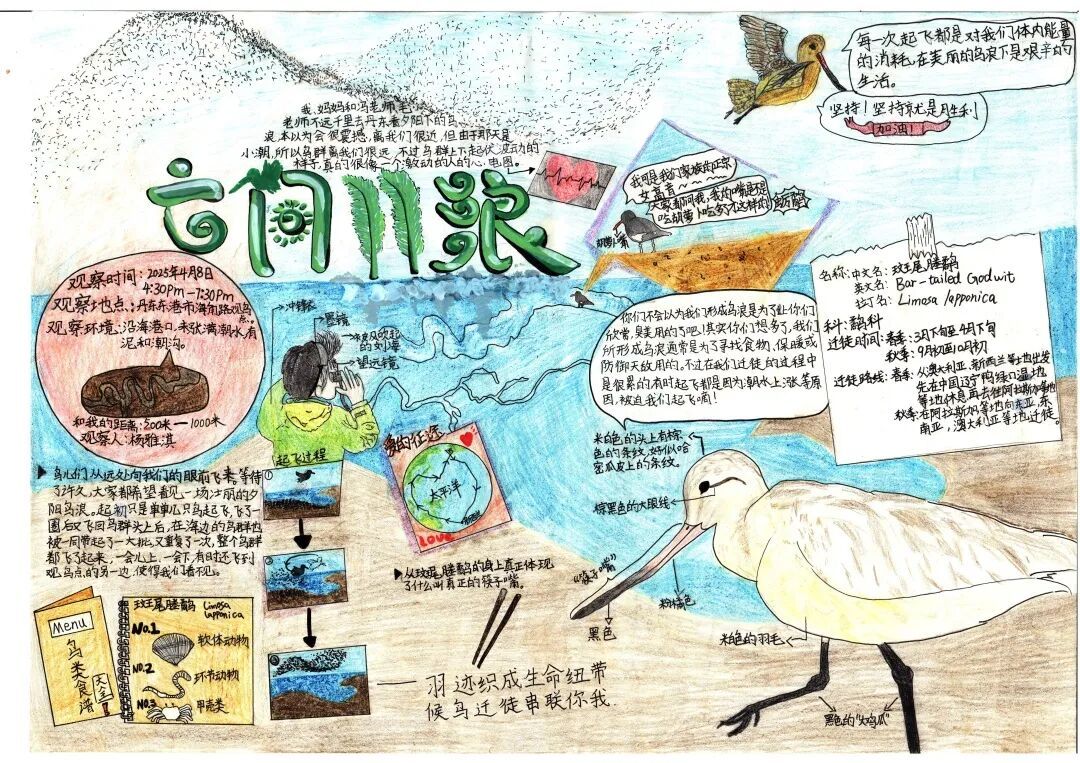 每一次起飞都是对我们体内能量
的消耗,在美丽的鸟浪下是艰辛的
生活。
坚持!坚持就是胜利
加油!
我、妈妈和冯老师毛
老师不远千里去丹东看夕阳下的鸟
浪,本以为会很震撼,离我们很近,但由于那天是
小潮,所以鸟群离我们很远,不过鸟群上下起伏、波动的
样子,真的很像一个激动的人的心电图。
鸟浪
我可是我们家族的正宗
女高音~~~~
大家都问我,我的嘴是不是
吃胡萝卜吃多了才这样的
蛎鹬
胡萝卜嘴
观察时间:2025年4月8日
4:30pm-7:30pm
观察地点:丹东东港市海角路观鸟
点。
观察环境:沿海港口,未涨满潮水,有
泥和潮沟。
和我的距离:500米—1000米
观察人:杨雅淇
冲锋衣
墨镜
被风吹起
的刘海
望远镜
名称:中文名:斑尾塍鹬
英文名:Bar-tailed Godwit
拉丁名:Limosa lapponica
科:鹬科
迁徙时间:春季:3月下旬至4月下旬
秋季:9月初到10月初
迁徙路线:春季:从澳大利亚、新西兰等地出发
先在中国辽宁鸭绿江湿地
等地休息再去往阿拉斯加等地
秋季:在阿拉斯加等地向东亚、东
南亚,澳大利亚等地迁徙。
你们不会以为我们形成鸟浪是为了让你们
欣赏,臭美用的了吧!其实你们想多了,我们
所形成鸟浪通常是为了寻找食物、保暖或
防御天敌用的。不过在我们迁徙的过程中
是很累的有时起飞都是因为潮水上涨等原
因,被迫我们起飞嘀!
▶鸟儿们从远处向我们的眼前飞来,等待
了许久,大家都希望看见一场壮丽的夕
阳鸟浪。起初只是单单几只鸟起飞,飞了一
圈后又飞回鸟群头上后,在海边的鸟群也
被一同带起了一大批,又重复了一次,整个鸟群
都飞了起来,一会儿上,一会下,有时还飞到
观鸟点的另一边,使得我们看不见。
起飞过程
①
②
爱的征途
太平洋
LOVE
米白色的头上有棕
色的条纹,好似哈
密瓜皮上的条纹。
棕黑色的大眼线
▶从斑尾塍鹬的身上真正体现
了什么叫真正的筷子嘴。
"筷子嘴"
粉橘色
黑色
米白的羽毛
黑色的"大鸡爪"
Menu
鸟类食谱
大全!
斑尾塍鹬 Limosa
lapponica
No.1
软体动物
No.2
环节动物
No.3
甲壳类
——羽迹织成生命纽带
候鸟迁徙串联你我